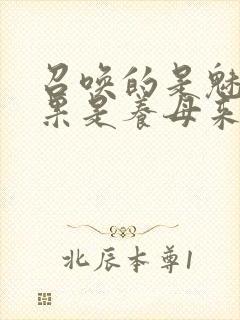 召唤的是魅
果是养母来
北辰本尊1